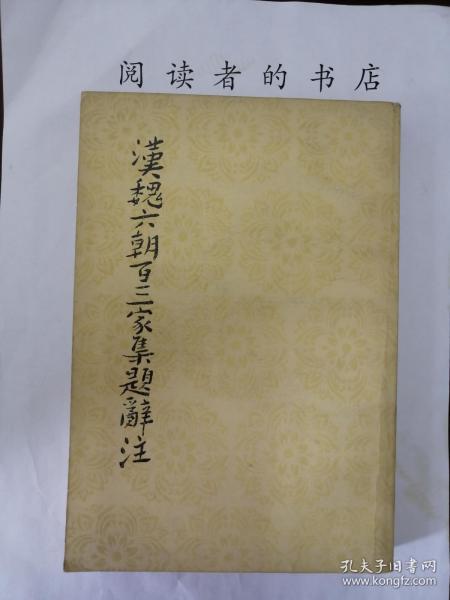 阅读者的书店
漢魏六朝百三家集題辭注
孔夫子旧书网
www.kongfz.com